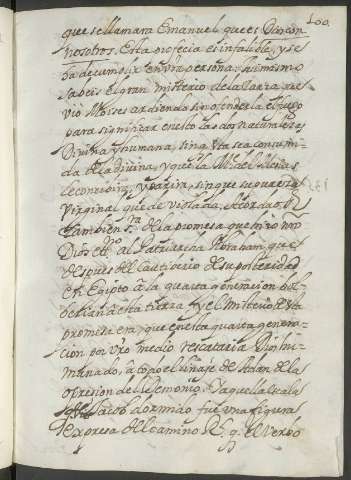 100.
que se llamara Emanuel, que es Dios con
nosotros. esta profecia es infalible, y se
ha de cumplir en Vra persona. Assimismo
sabeis el gran misterio de la Zarza, que
vio Moises ardiendo sin ofenderla el fuego
para significar en esto las dos naturalezas
Divina y humana, sin q̃ esta sea consumi-
da de la divina, y que la Madre
de concevir, y parir, sin que su pureza
virginal quede violada. Acordaos,
tambien Sra. de la promesa que hizo nro
Dios al Patriarcha Abraham, que
despues del Cautiverio de su posteridad
en Egipto a la quarta generacion bol-
berian a esta tierra, y el misterio de esta
promesa era, que en esta quarta genera-
cion por vro medio rescataria Dios hu-
manado, a todo el linaje de Adan de la
opresion del Demonio. Y aquella escala
que Jacob dormido fue una figura
expresa del camino R. q. el Verbo